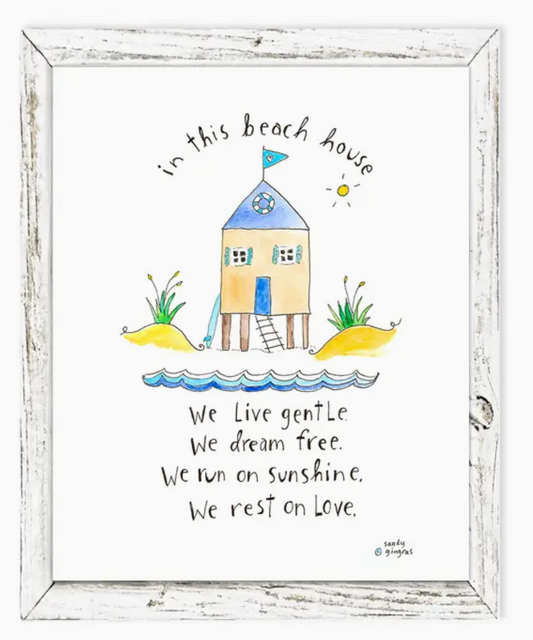 in this beach house
We Live gentle.
We dream free.
We run on sunshine.
We rest on Love.
sandy
© gingras